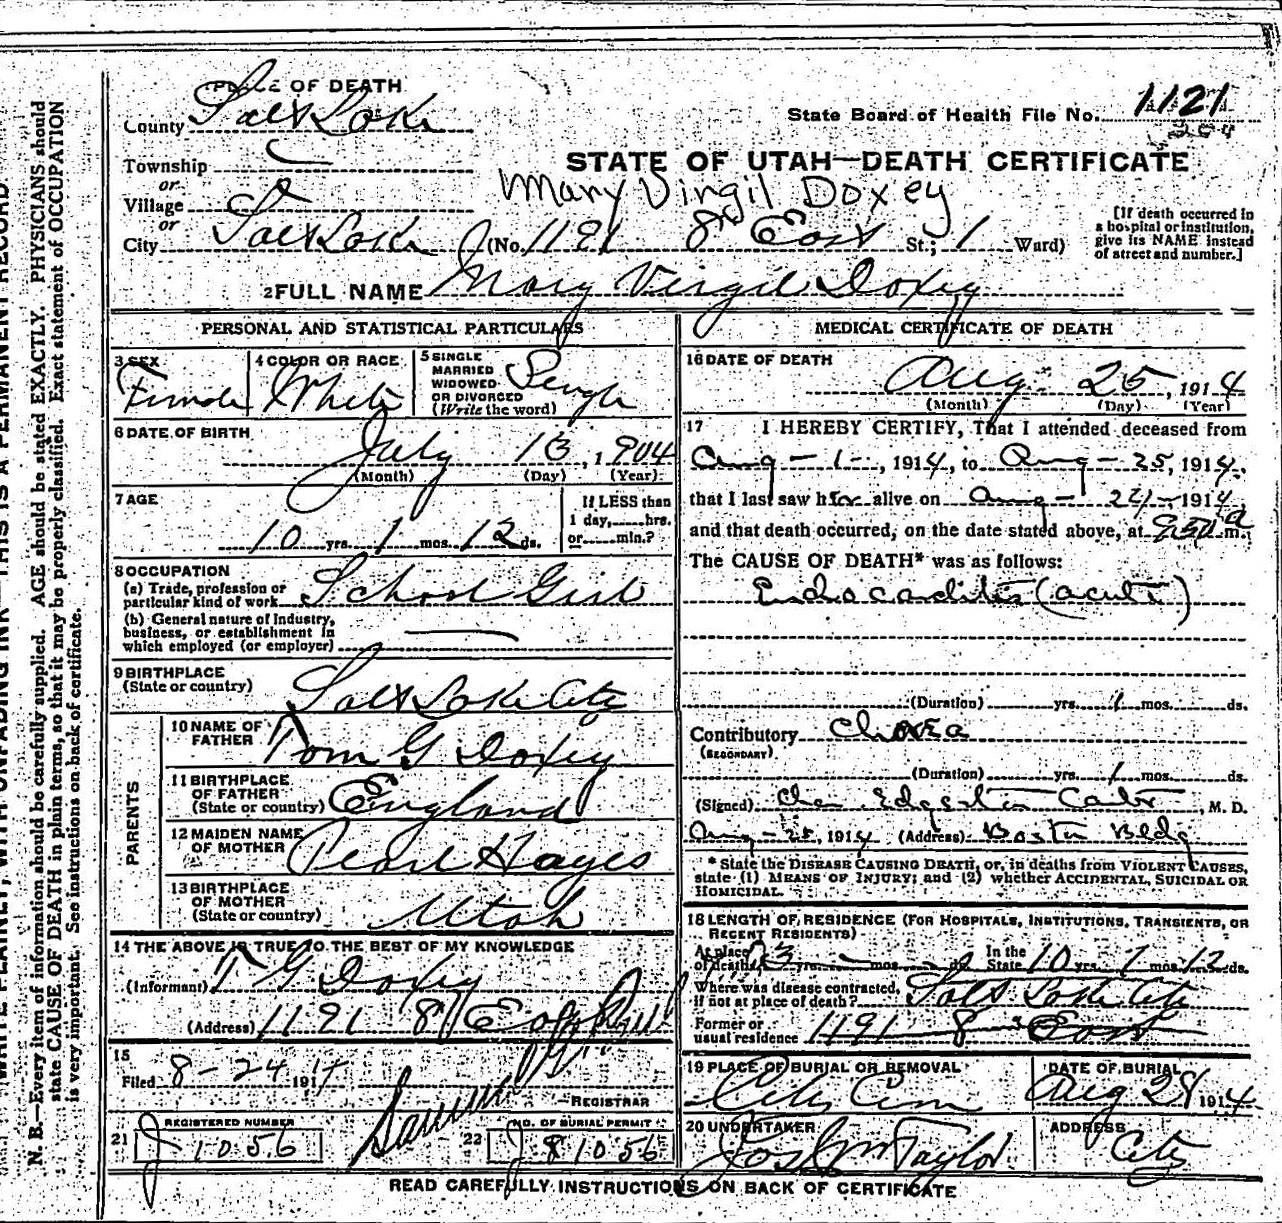 WRITE PLAINLY, WITH UNFADING INK—THIS IS A PERMANENT RECORD
N. B.—Every item of information should be carefully supplied. AGE should be stated EXACTLY. PHYSICIANS should
state CAUSE OF DEATH in plain terms, so that it may be properly classified. Exact statement of OCCUPATION
is very important. See instructions on back of certificate.
PLACE OF DEATH
County Salt Lake
State Board of Health File No. 1121
Township
or
STATE OF UTAH—DEATH CERTIFICATE
Village
or
Mary Virgil Doxey
City Salt Lake (No. 1191 8th East St.; 1 Ward)
[If death occurred in
a hospital or institution,
give its NAME instead
of street and number.]
2 FULL NAME Mary Virgil Doxey
PERSONAL AND STATISTICAL PARTICULARS
3 SEX
Female
4 COLOR OR RACE
White
5 SINGLE
MARRIED
WIDOWED
OR DIVORCED
(Write the word)
Single
6 DATE OF BIRTH
July 13, 1904
(Month) (Day) (Year)
7 AGE
10 yrs. 1 mos. 12 ds.
If LESS than
1 day, hrs.
or min.?
8 OCCUPATION
(a) Trade, profession or
particular kind of work School Girl
(b) General nature of Industry,
business, or establishment in
which employed (or employer)
9 BIRTHPLACE
(State or country) Salt Lake City
PARENTS
10 NAME OF
FATHER Tom G Doxey
11 BIRTHPLACE
OF FATHER
(State or country) England
12 MAIDEN NAME
OF MOTHER Pearl Hayes
13 BIRTHPLACE
OF MOTHER
(State or country) Utah
14 THE ABOVE IS TRUE TO THE BEST OF MY KNOWLEDGE
(Informant) T G Doxey
(Address) 1191 8 East
15
Filed 8-24 1914
REGISTRAR
REGISTERED NUMBER
21 J 1056
NO. OF BURIAL PERMIT
22 J 81056
MEDICAL CERTIFICATE OF DEATH
16 DATE OF DEATH
Aug 25, 1914
(Month) (Day) (Year)
17 I HEREBY CERTIFY, That I attended deceased from
Aug-1-, 1914, to Aug-25, 1914,
that I last saw her alive on Aug- 1914
and that death occurred, on the date stated above, at a m.
The CAUSE OF DEATH* was as follows:
Endocarditis (acute)
(Duration) yrs. 1 mos. ds.
Contributory Chorea
(SECONDARY)
(Duration) yrs. 1 mos. ds.
(Signed) Chas Edgerton Carter, M. D.
Aug-25, 1914 (Address) Boston Bldg
* State the DISEASE CAUSING DEATH, or, in deaths from VIOLENT CAUSES,
state (1) MEANS OF INJURY; and (2) whether ACCIDENTAL, SUICIDAL OR
HOMICIDAL.
18 LENGTH OF RESIDENCE (FOR HOSPITALS, INSTITUTIONS, TRANSIENTS, OR
RECENT RESIDENTS)
At place
of death 3 yrs. mos. ds.
In the
State 10 yrs. 1 mos. 12 ds.
Where was disease contracted,
if not at place of death? Salt Lake City
Former or
usual residence 1191 8 East
19 PLACE OF BURIAL OR REMOVAL
City Cem
DATE OF BURIAL
Aug 28 1914
20 UNDERTAKER
Jos Wm Taylor
ADDRESS
City
READ CAREFULLY INSTRUCTIONS ON BACK OF CERTIFICATE